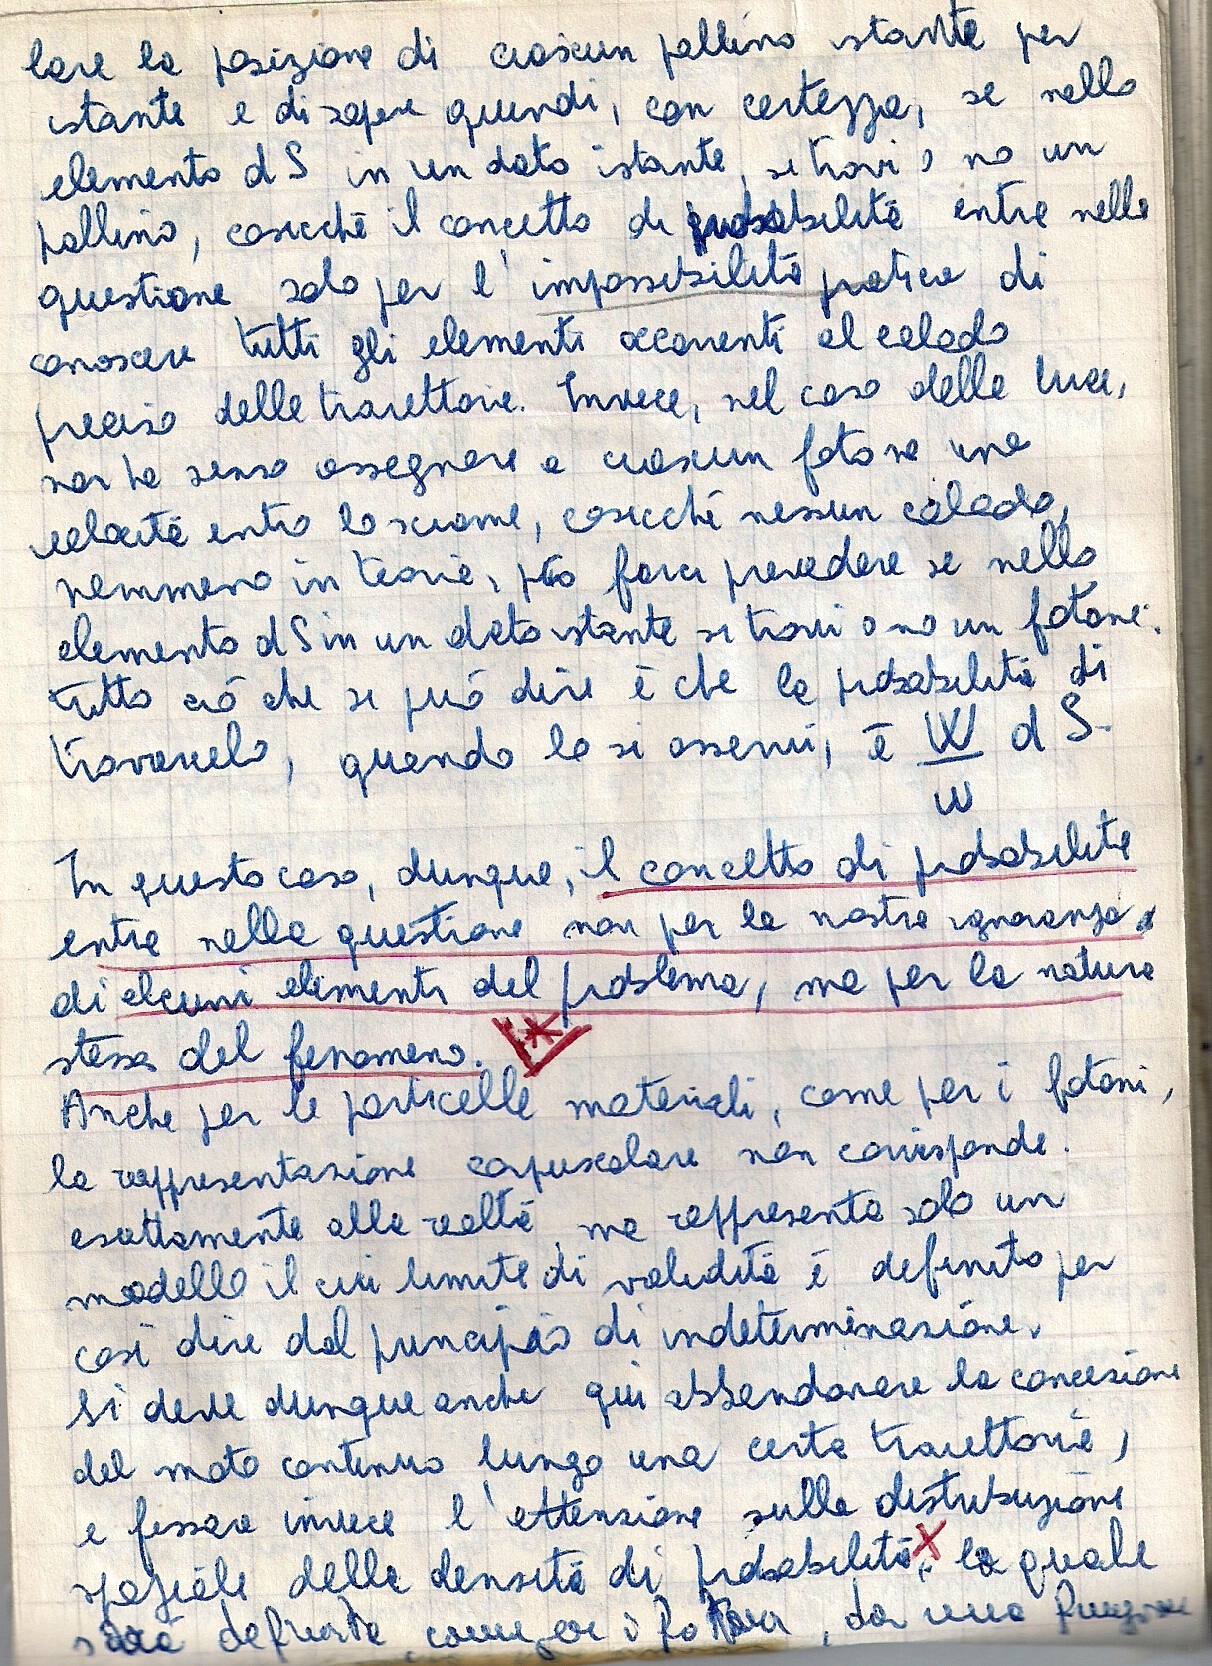 lare la posizione di ciascun pallino istante per
istante e di sapere quindi, con certezza, se nello
elemento dS in un dato istante, si trovi o no un
pallino, cosicché il concetto di probabilità entra nella
questione solo per l'impossibilità pratica di
conoscere tutti gli elementi occorrenti al calcolo
preciso delle traiettorie. Invece, nel caso della luce,
non ha senso assegnare a ciascun fotone una
velocità entro lo sciame, cosicché nessun calcolo,
nemmeno in teoria, può farci prevedere se nello
elemento dS in un dato istante si trovi o no un fotone:
tutto ciò che si può dire è che la probabilità di
trovarvelo, quando lo si osservi, è W/w dS.
In questo caso, dunque, il concetto di probabilità
entra nella questione non per la nostra ignoranza
di alcuni elementi del problema, ma per la natura
stessa del fenomeno. *
Anche per le particelle materiali, come per i fotoni,
la rappresentazione corpuscolare non corrisponde
esattamente alla realtà, ma rappresenta solo un
modello il cui limite di validità è definito per
così dire dal principio di indeterminazione.
Si deve dunque anche qui abbandonare la concezione
del moto continuo lungo una certa traiettoria,
e fissare invece l'attenzione sulla distribuzione
spaziale della densità di probabilità x, la quale
sarà definita, come per i fotoni, da una funzione